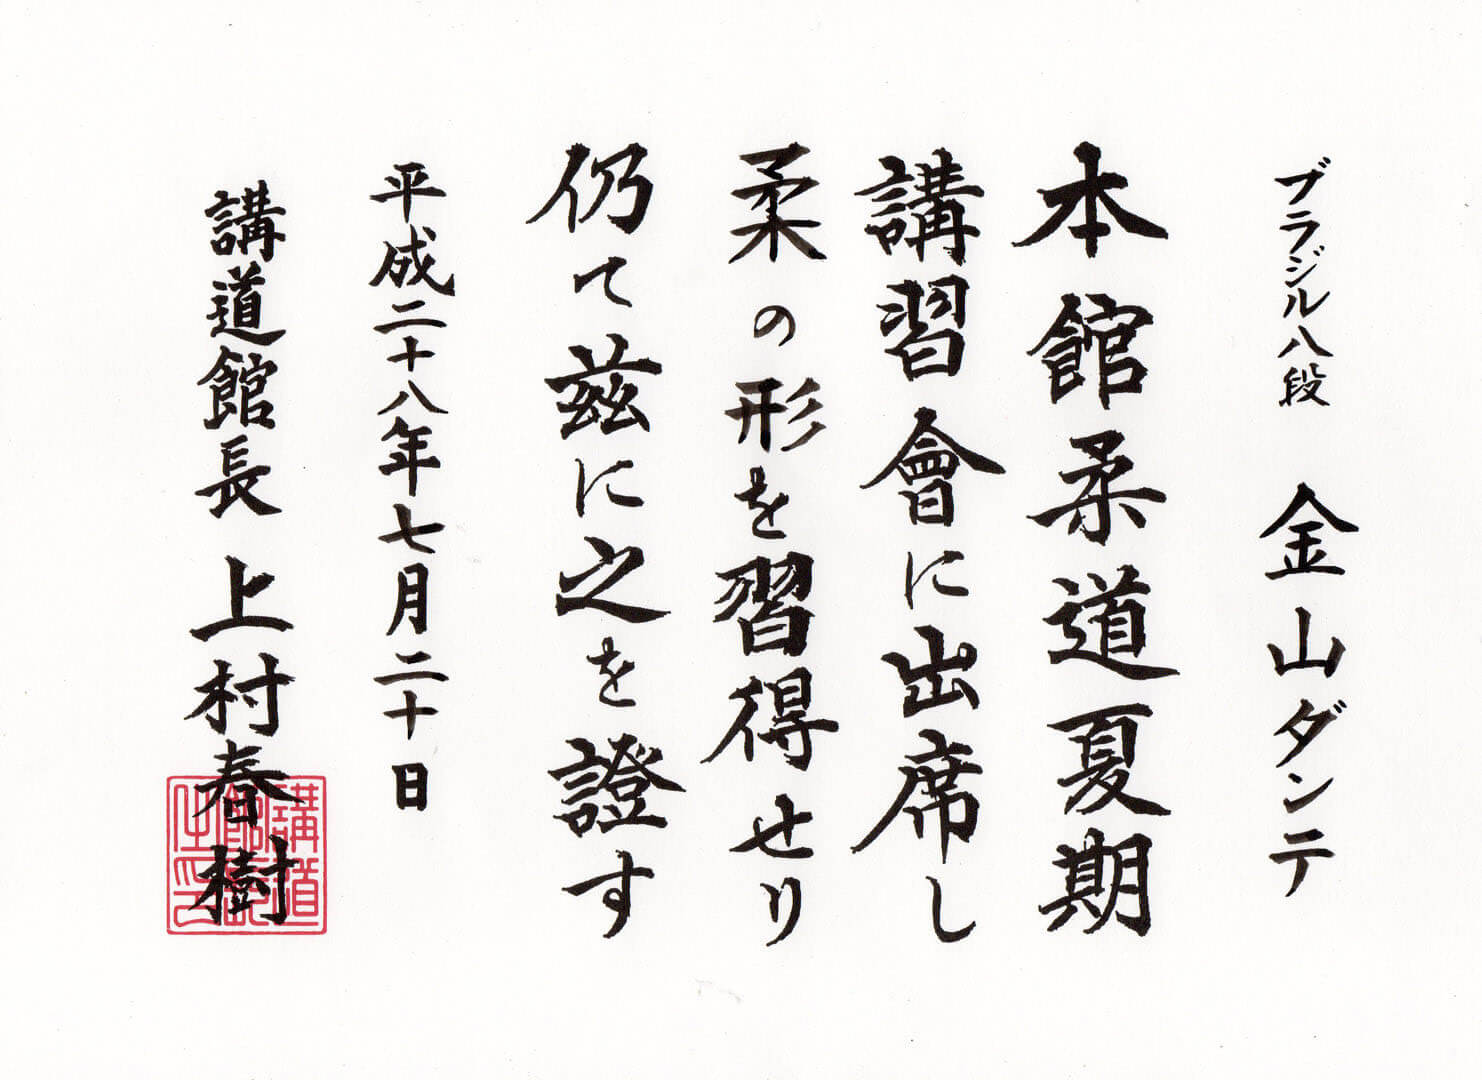 ブラジル八段 金山ダンテ
本館柔道夏期
講習會に出席し
柔の形を習得せり
仍て茲に之を證す
平成二十八年七月二十日
講道館長 上村春樹